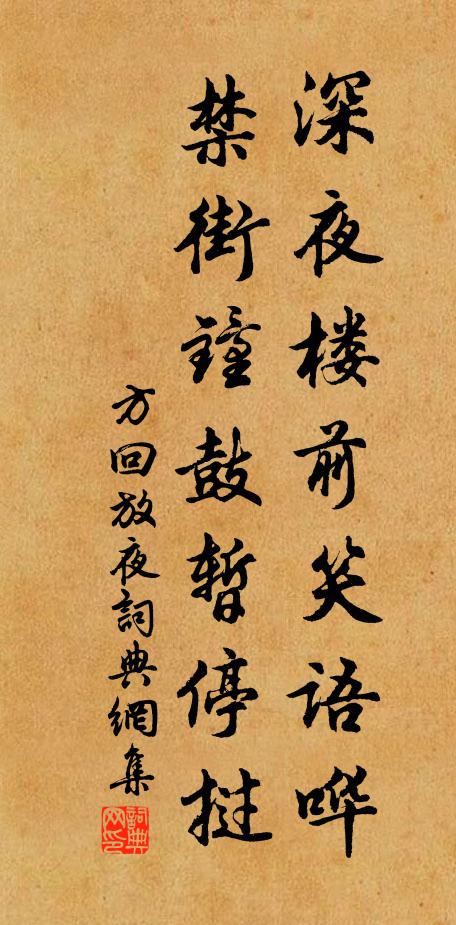 深夜楼前笑语哗
禁街鐘鼓暂停挝
方回放夜詞典網集
詞典网印